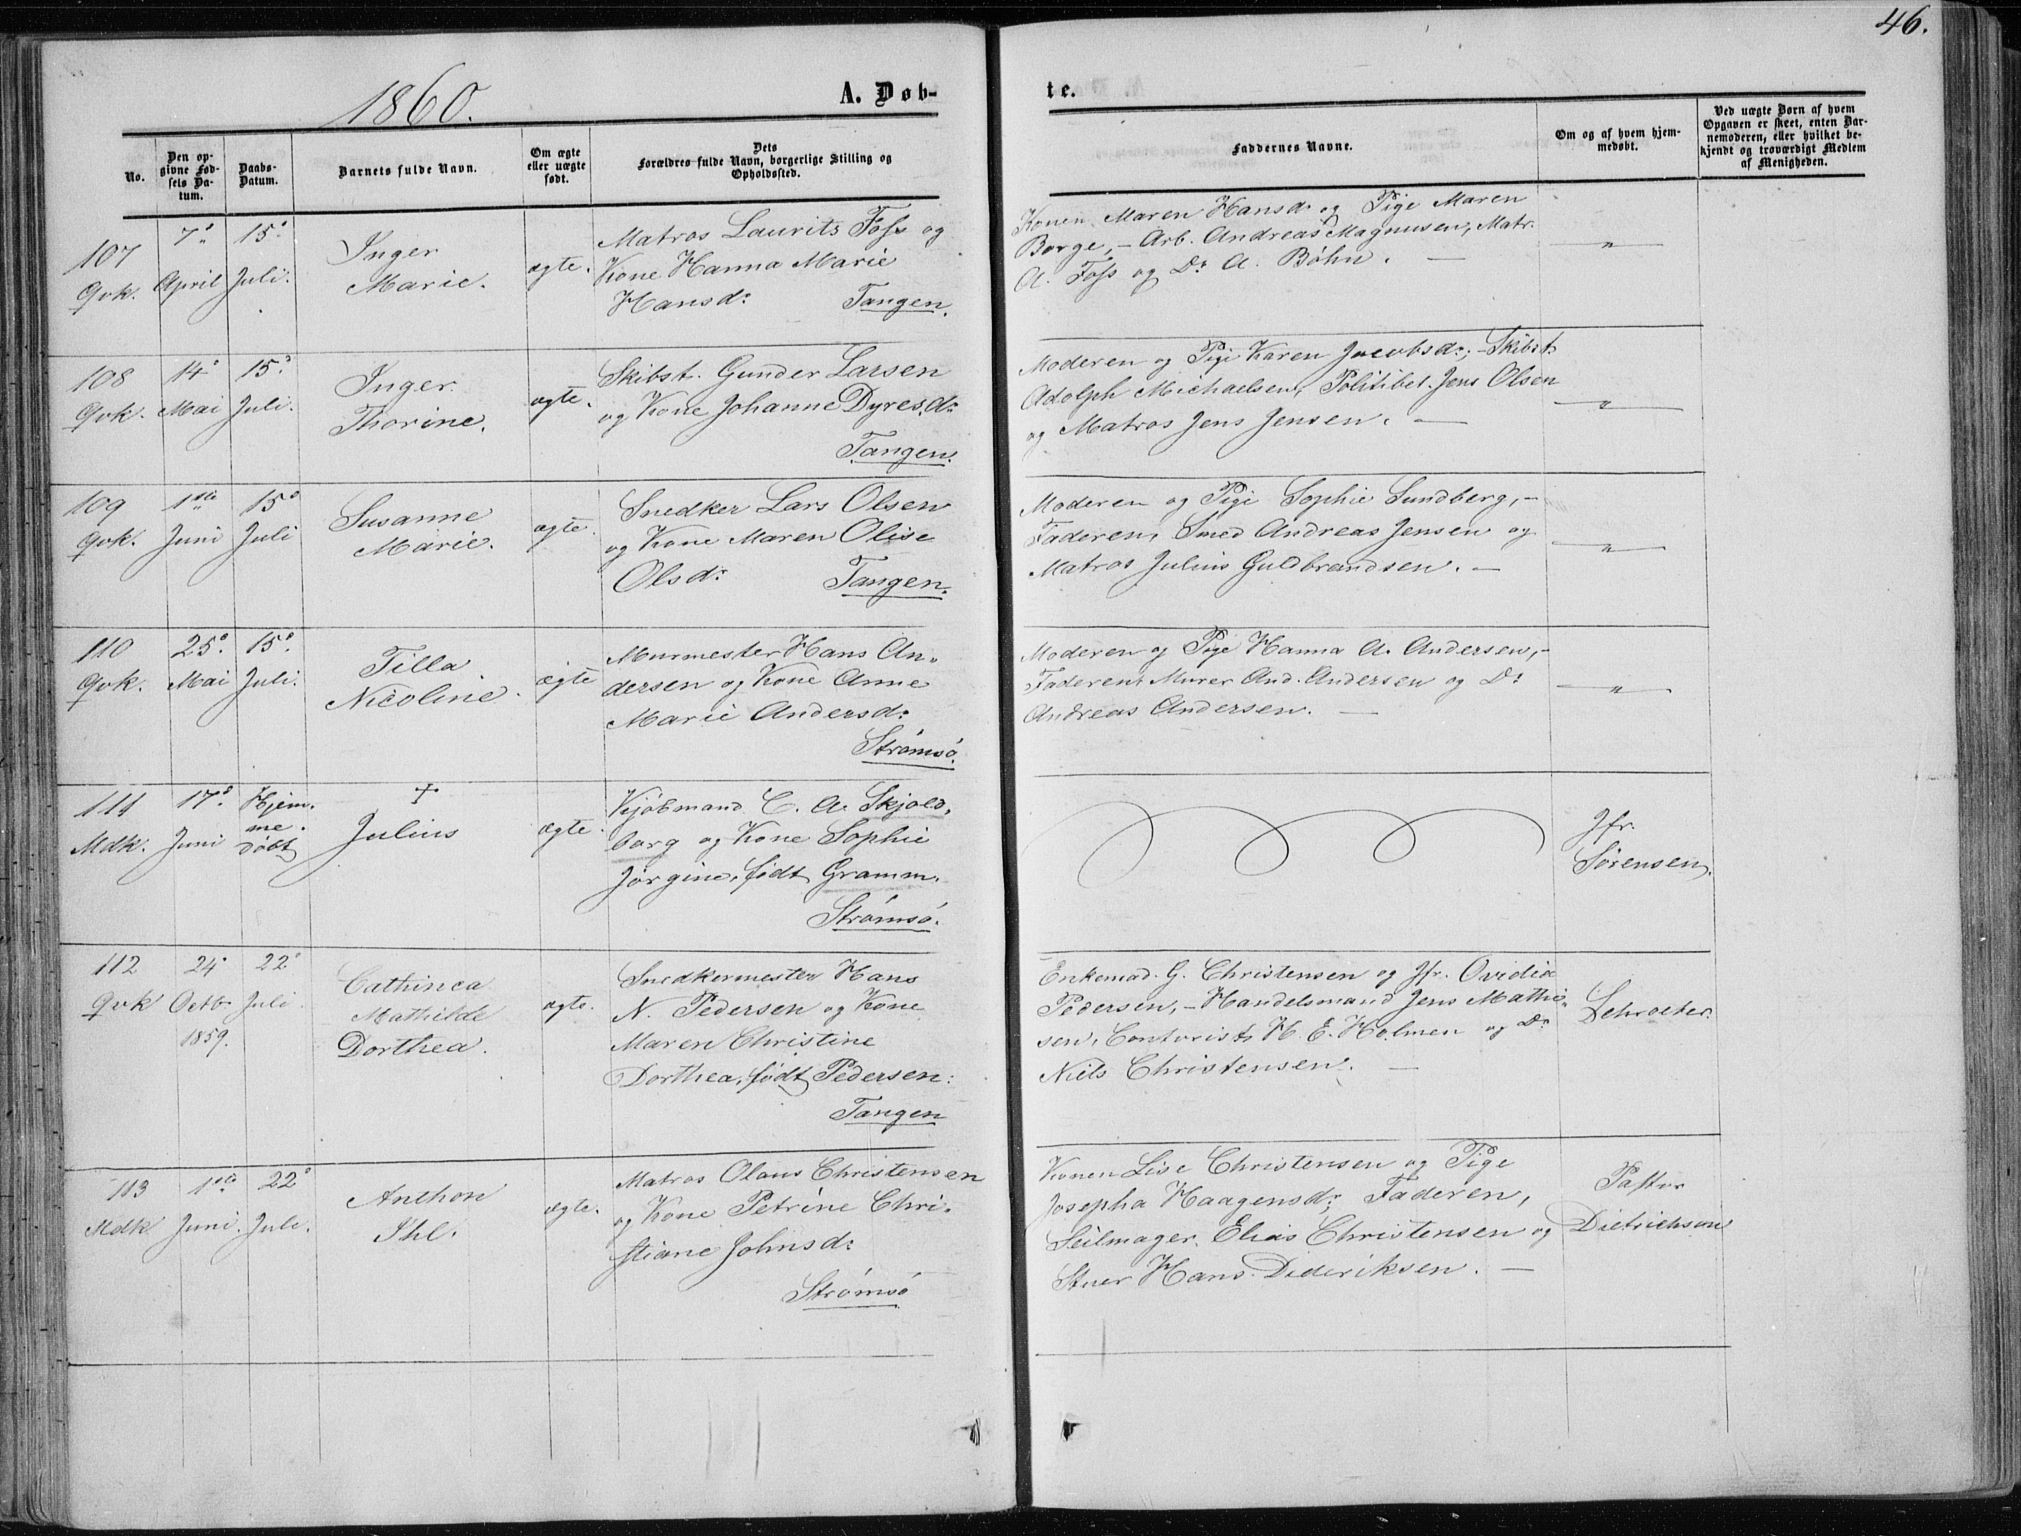 46.
1860.
A. Døb-
te.
No.
Den op-
givne Fød-
sels Da-
tum.
Daabs-
Datum.
Barnets fulde Navn.
Om ægte
eller uægte
født.
Dets
Forældres fulde Navn, borgerlige Stilling og
Opholdssted.
Faddernes Navne.
Om og af hvem hjem-
medøbt.
Ved uægte Børn af hvem
Opgaven er skeet, enten Bar-
nemoderen, eller hvilket be-
kjendt og troværdigt Medlem
af Menigheden.
107
Qvk.
7de
April
15de
Juli.
Inger
Marie.
ægte.
Matros Laurits Foss og
Kone Hanna Marie
Hansd:
Tangen.
Konen Maren Hansd: og Pige Maren
Borge, – Arb. Andreas Magnusen, Matr.
A. Foss og Do A. Bøhn. —
"
108
Qvk.
14de
Mai
15de
Juli.
Inger
Thorine.
ægte.
Skibst. Gunder Larsen
og Kone Johanne Dyresd:
Tangen.
Moderen og Pige Karen Jacobsd:, – Skibst.
Adolph Michaelsen, Politibet. Jens Olsen
og Matros Jens Jensen. —
"
109
Qvk.
1ste
Juni
15de
Juli
Susanne
Marie.
ægte.
Snedker Lars Olsen
og Kone Maren Olise
Olsd:
Tangen.
Moderen og Pige Sophie Sundberg, –
Faderen, Smed Andreas Jensen og
Matros Julius Guldbrandsen. —
"
110
Qvk.
25de
Mai
15de
Juli.
Tilla
Nicoline.
ægte
Murmester Hans An-
dersen og Kone Anne
Marie Andersd:
Strømsø.
Moderen og Pige Hanna A. Andersen, –
Faderen, Murer And. Andersen og Do
Andreas Andersen. —
"
111
Mdk.
17de
Juni
Hjem-
me-
døbt
+
Julius
ægte.
Kjøbmand C. A. Skjold-
borg og Kone Sophie
Jørgine, født Gramm.
Strømsø.
Jfr.
Sørensen.
112
Qvk
24de
Octb.
1859.
22de
Juli.
Cathinca
Mathilde
Dorthea.
ægte.
Snedkermester Hans
N. Pedersen og Kone
Maren Christine
Dorthea, født Pedersen:
Tangen
Enkemad. G. Christensen og Jfr. Ovidia
Pedersen, – Handelsmand Jens Mathi-
sen, Contorist H. E. Holmen og Do
Niels Christensen. —
Schroeter.
113
Mdk
1ste
Juni.
22de
Juli.
Anthon
Ihl.
ægte.
Matros Olaus Christensen
og Kone Petrine Chri-
stiane Johnsd:
Strømsø
Konen Lise Christensen og Pige
Josepha Haagensd:, Faderen,
Seilmager Elias Christensen og
Stuer Hans Dideriksen. —
Pastor
Dietrichson